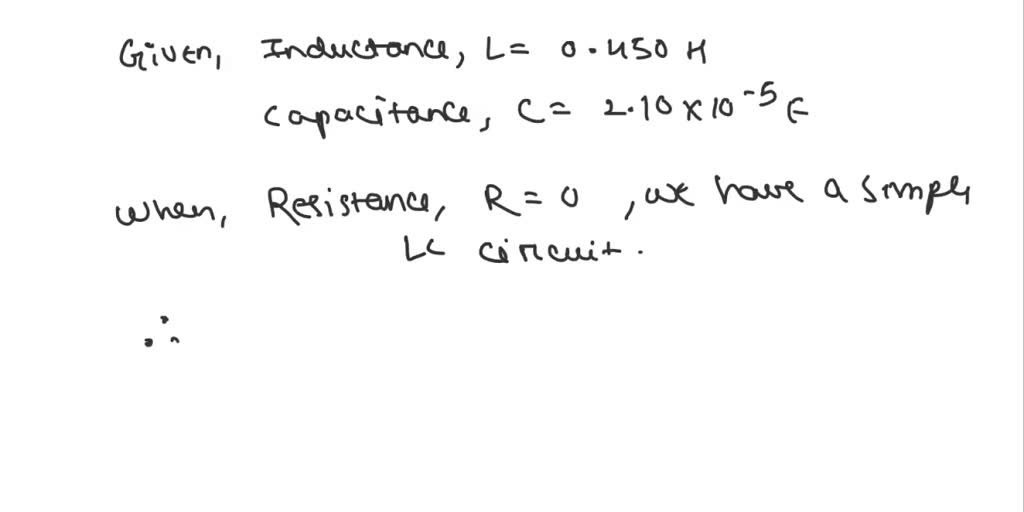 Given, Inductance, L = 0.450 H
Capacitance, C = 2.10 × 10⁻⁵ F
When, Resistance, R = 0 , we have a simple
LC circuit.
∴